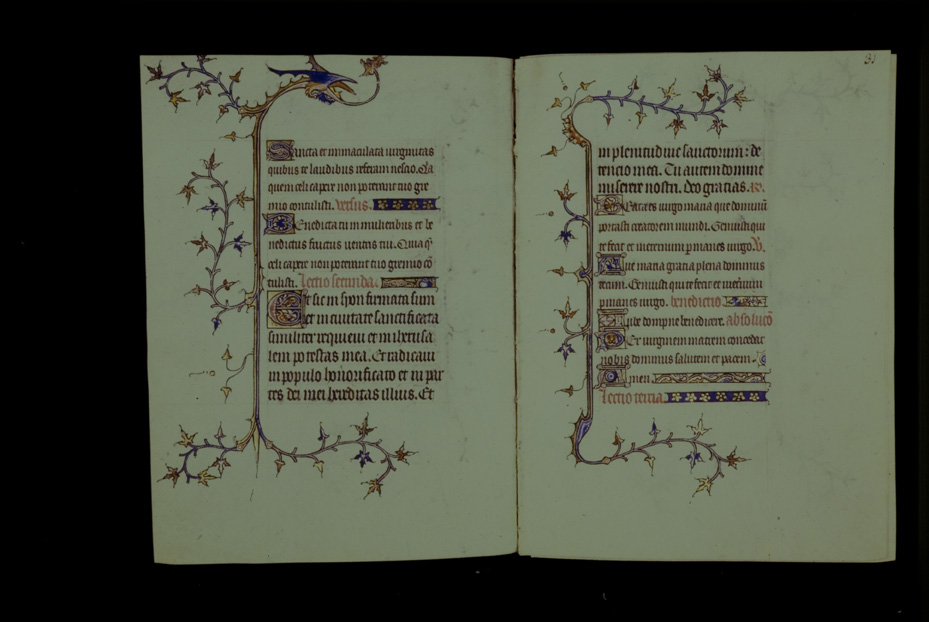 Sancta et immaculata uirginitas
quibus te laudibus referam nescio. Q̄a
quem celi capere non poterant tuo gre
mio contulisti. versus.
Benedicta tu in mulieribus et be
nedictus fructus uentris tui. Quia q̄
celi capere non poterant tuo gremio cō
tulisti. Lectio secunda.
Et sic in syon firmata sum
et in ciuitate sanctificata
similiter requieui et in iherusa
lem potestas mea. Et radicaui
in populo honorificato et in par
tes dei mei hereditas illius. Et
31
in plenitudine sanctorum: de
tencio mea. Tu autem domine
miserere nostri. Deo gracias. R.
Beata es uirgo maria que dominū
portasti creatorem mundi. Genuisti qui
te fecit et in eternum pmanes uirgo. V.
Aue maria gratia plena dominus
tecum. Genuisti qui te fecit et in eternū
pmanes uirgo. benedictio
Iube dompne benedicere. absolucō
Per uirginem matrem concedat
nobis dominus salutem et pacem.
Amen.
Lectio tercia.